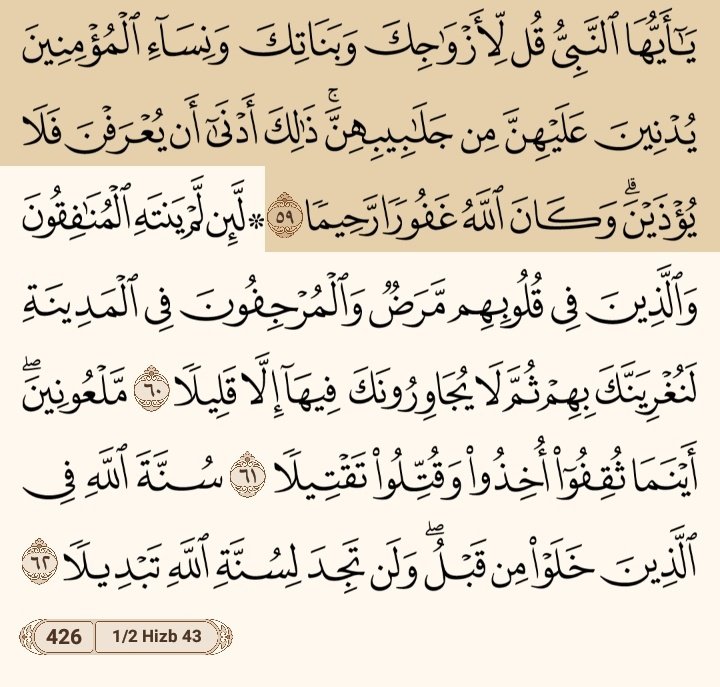 يَـٰٓأَيُّهَا ٱلنَّبِيُّ قُل لِّأَزْوَٰجِكَ وَبَنَاتِكَ وَنِسَآءِ ٱلْمُؤْمِنِينَ
يُدْنِينَ عَلَيْهِنَّ مِن جَلَـٰبِيبِهِنَّۚ ذَٰلِكَ أَدْنَىٰٓ أَن يُعْرَفْنَ فَلَا
يُؤْذَيْنَۗ وَكَانَ ٱللَّهُ غَفُورًا رَّحِيمًا ٥٩ * لَّئِن لَّمْ يَنتَهِ ٱلْمُنَـٰفِقُونَ
وَٱلَّذِينَ فِي قُلُوبِهِم مَّرَضٌ وَٱلْمُرْجِفُونَ فِي ٱلْمَدِينَةِ
لَنُغْرِيَنَّكَ بِهِمْ ثُمَّ لَا يُجَاوِرُونَكَ فِيهَآ إِلَّا قَلِيلًا ٦٠ مَّلْعُونِينَۖ
أَيْنَمَا ثُقِفُوٓا۟ أُخِذُوا۟ وَقُتِّلُوا۟ تَقْتِيلًا ٦١ سُنَّةَ ٱللَّهِ فِي
ٱلَّذِينَ خَلَوْا۟ مِن قَبْلُۖ وَلَن تَجِدَ لِسُنَّةِ ٱللَّهِ تَبْدِيلًا ٦٢
426 1/2 Hizb 43